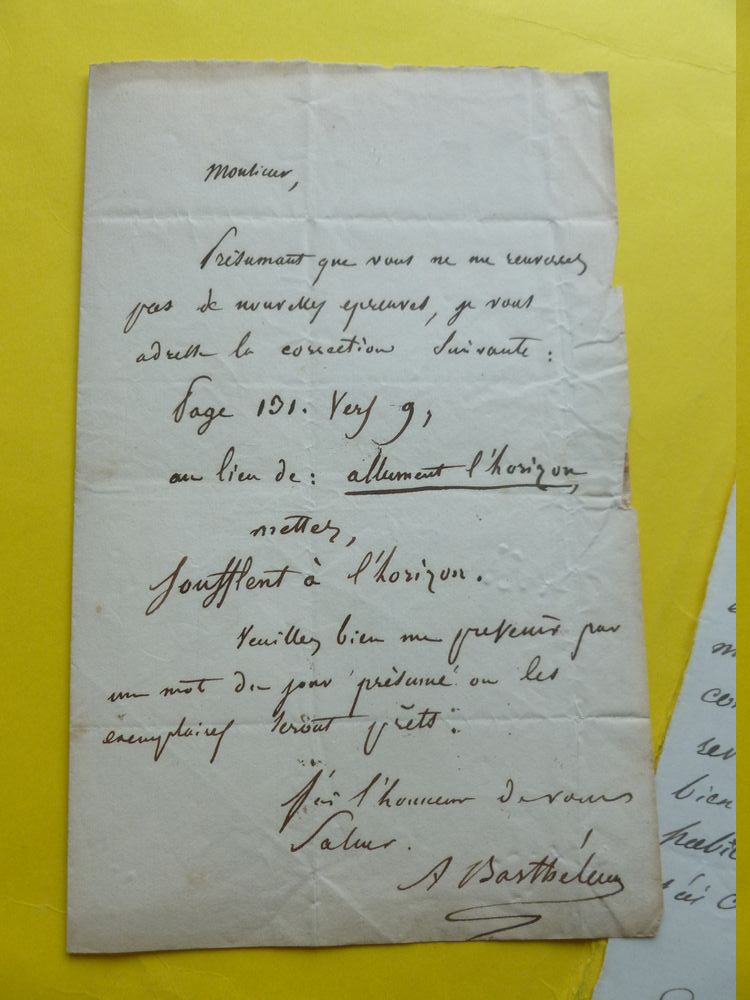 Monsieur,
Présumant que vous ne me renverrez
pas de nouvelles épreuves, je vous
adresse la correction suivante :
Page 131. Vers 9,
au lieu de : allument l'horizon,
mettez,
Soufflent à l'horizon.
Veuillez bien me prévenir par
un mot du jour présumé où les
exemplaires seront prêts.
J'ai l'honneur de vous
Saluer.
A Barthélemy
bien